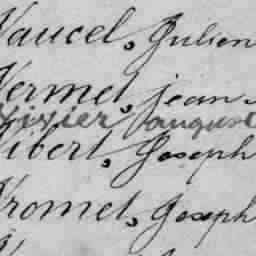 Vaucel, Julien
Vermel, jean
Vivier august
Vibert, Joseph
Vromet, Joseph